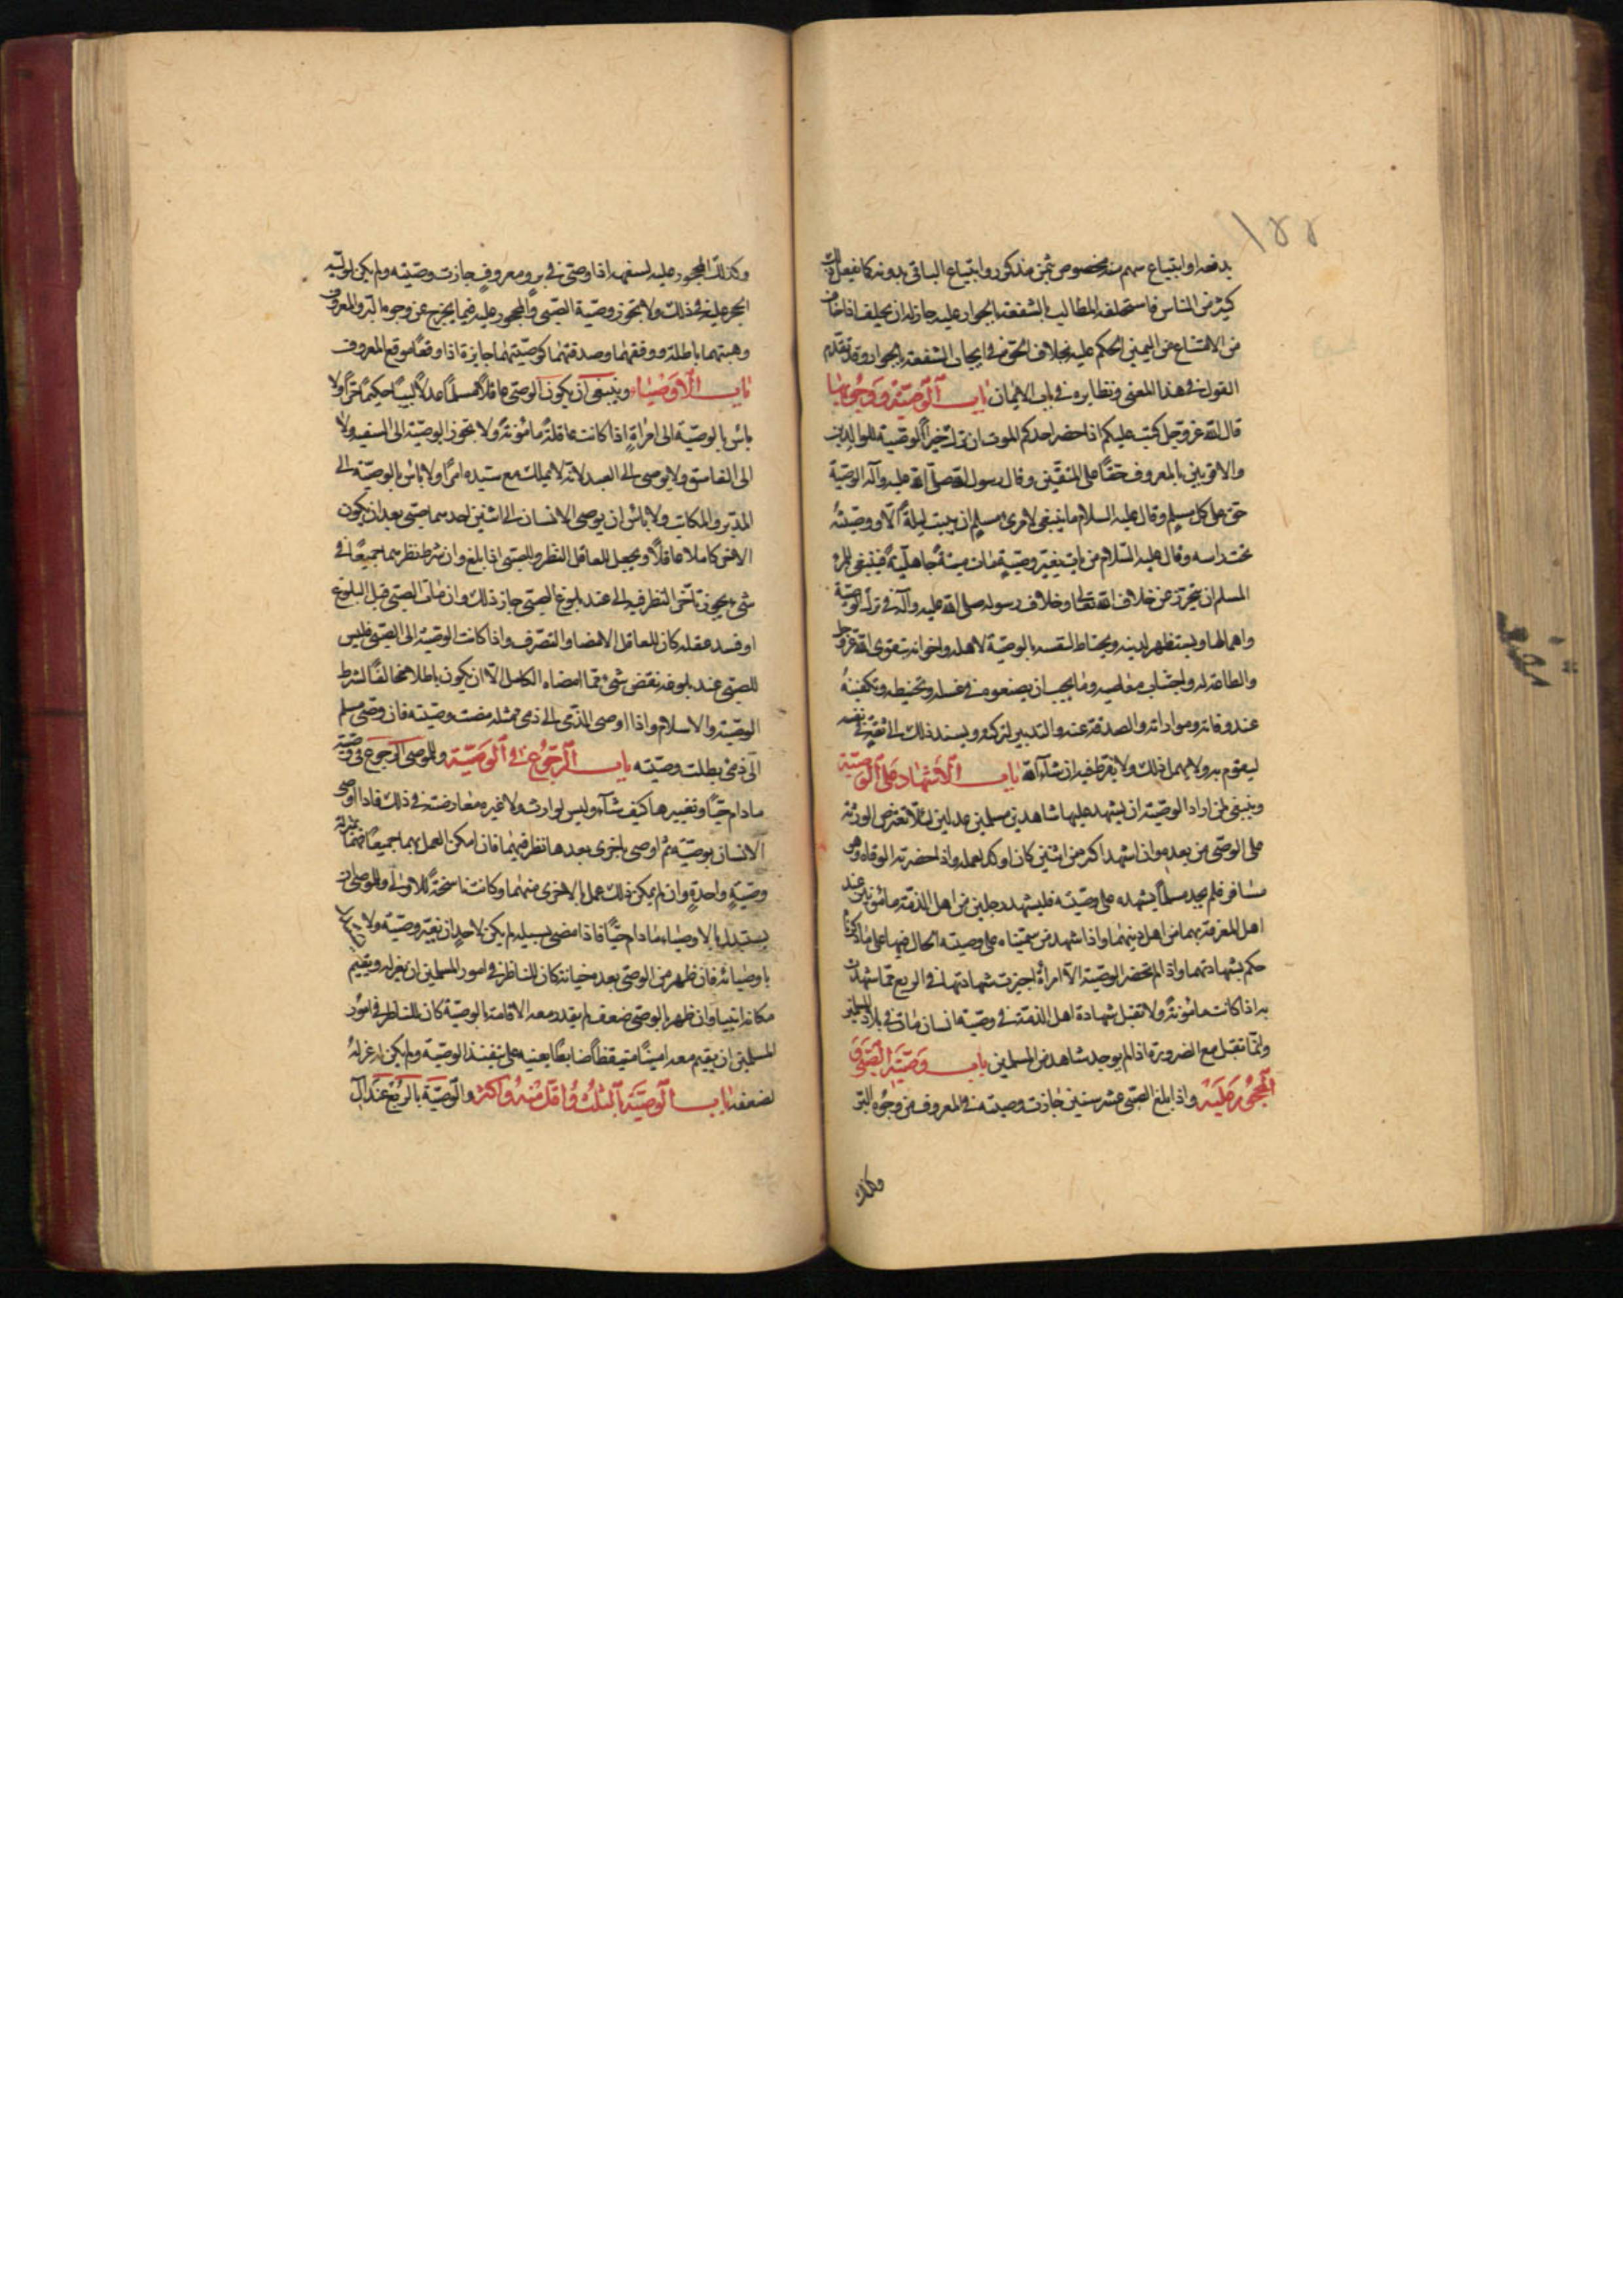 ۱۵۵
بدفعه او ابتياع سهم منه مخصوص بثمن مذكور وابتياع الباقي بدونه كما يفعل ذلك
كثير من الناس فاستحلفه المطالب بالشفعة بالجوار عليه جاز له ان يحلف اذا خاف
من الامتناع عن اليمين الحكم عليه بخلاف الحق في ايجاب الشفعة بالجوار وقد تقدم
القول في هذا المعنى ونظايره في باب الايمان باب الوصية ووجوبها
قال الله عز وجل كتب عليكم اذا حضر احدكم الموت ان ترك خيرا الوصية للوالدين
والاقربين بالمعروف حقا على المتقين وقال رسول الله صلى الله عليه وآله الوصية
حق على كل مسلم وقال عليه السلام ما ينبغي لامرئ مسلم ان يبيت ليلة الا ووصيته
تحت راسه وقال عليه السلام من مات بغير وصية مات ميتة جاهلية فينبغي للمرء
المسلم ان يتحرز من خلاف الله تعالى وخلاف رسوله صلى الله عليه وآله في ترك الوصية
واهمالها ويستظهر لدينه ويحتاط لنفسه بالوصية لاهله واخوانه بتقوى الله عز وجل
والطاعة له واجتناب معاصيه وما يجب ان يصنعوه في غسله وتحنيطه وتكفينه
عند وفاته ومواراته والصدقة عنه والتدبير لتركته ويسند ذلك الى ثقة في نفسه
ليقوم به ولا يهمل ذلك ولا يفرط فيه ان شاء الله باب الاشهاد على الوصية
وينبغي لمن اراد الوصية ان يشهد عليها شاهدين مسلمين عدلين لئلا تعترض الورثة
على الوصي من بعده وان اشهد اكثر من اثنين كان اوكد لعمله واذا حضرته الوفاة وهو
مسافر فلم يجد مسلما يشهده على وصيته فليشهد رجلين من اهل الذمة مأمونين عند
اهل المعرفة بهما من اهل دينهما واذا شهد من سميناه على وصيته الحال فيها على ما ذكرنا
حكم بشهادتهما واذا لم تحضر الوصية الا امرأة اجيزت شهادتها في الربع مما شهدت
به اذا كانت مأمونة ولا تقبل شهادة اهل الذمة في وصية انسان مات في بلاد المسلمين
وانما تقبل مع الضرورة اذا لم يوجد شاهد من المسلمين باب وصية الصبي و
المحجور عليه واذا بلغ الصبي عشر سنين جازت وصيته في المعروف من وجوه البر
وكذلك
وكذلك المحجور عليه لسفهه اذا وصى في بر ومعروف جازت وصيته ولم يكن لوليه
الحجر عليه في ذلك ولا تجوز وصية الصبي والمحجور عليه فيما يخرج عن وجوه البر والمعروف
وهبتهما باطلة ووقفهما وصدقتهما كوصيتهما جايزة اذا وقعا موقع المعروف
باب الاوصياء وينبغي ان يكون الوصي عاقلا مسلما عدلا لبيبا حكيما حرا ولا
بأس بالوصية الى امرأة اذا كانت عاقلة مأمونة ولا تجوز الوصية الى السفيه ولا
الى الفاسق ولا يوصى الى العبد لانه لا يملك مع سيده امرا ولا بأس بالوصية الى
المدبر والمكاتب ولا بأس ان يوصي الانسان الى اثنين احدهما صبي بعد ان يكون
الاخر كاملا عاقلا ويجعل للعاقل النظر وللصبي اذا بلغ وان شرط نظرهما جميعا في
شيء يجوز تأخر النظر فيه الى عند بلوغ الصبي جاز ذلك وان مات الصبي قبل البلوغ
او فسد عقله كان للعاقل الامضاء والتصرف واذا كانت الوصية الى الصبي فليس
للصبي عند بلوغه نقض شيء مما امضاه الكامل الا ان يكون باطلا مخالفا لشرط
الوصية والاسلام واذا اوصى الذمي الى ذمي مثله مضت وصيته فان وصى مسلم
الى ذمي بطلت وصيته باب الرجوع في الوصية وللموصي الرجوع في وصيته
ما دام حيا وتغييرها كيف شاء وليس لوارثه ولا غيره معارضته في ذلك فاذا اوصى
الانسان بوصية ثم اوصى باخرى بعدها نظر فيهما فان امكن العمل بهما جميعا فهما بمنزلة
وصية واحدة وان لم يمكن ذلك عمل بالاخرى منهما وكانت ناسخة للاولى وللموصي ان
يستبدل بالاوصياء ما دام حيا فاذا مضى لسبيله لم يكن لاحد ان يغير وصيته ولا
باوصيائه فان ظهر من الوصي بعده خيانة كان للناظر في امور المسلمين ان يعزله ويقيم
مكانه امينا وان ظهر بالوصي ضعف لم يقدر معه الاقامة بالوصية كان للناظر في امور
المسلمين ان يقيم معه امينا متيقظا ضابطا يعينه على تنفيذ الوصية ولم يكن له عزله
لضعفه باب الوصية بالثلث واقل منه واكثر والوصية بالربع عند آل